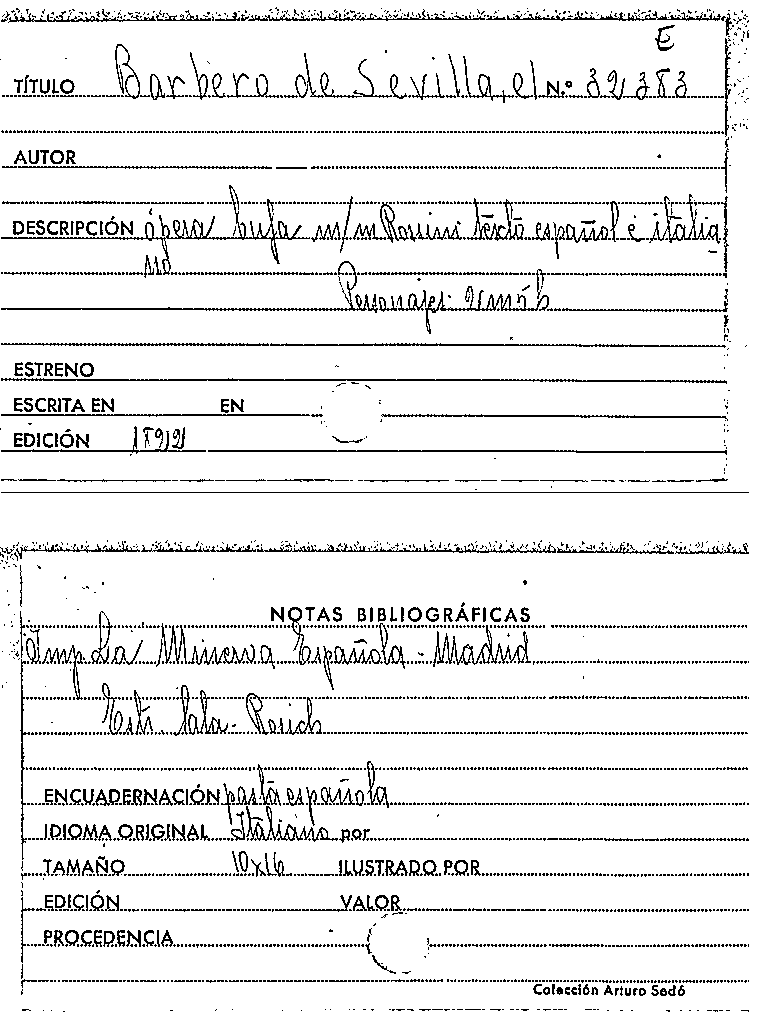 E
TÍTULO Barbero de Sevilla, el N.º 32383
AUTOR
DESCRIPCIÓN ópera bufa m/m Rossini texto español e italia
no
Personajes: 2m 5h
ESTRENO
ESCRITA EN EN
EDICIÓN 1822
NOTAS BIBLIOGRÁFICAS
Imp La Minerva Española - Madrid
Estr. Sala-
ENCUADERNACIÓN pasta española
IDIOMA ORIGINAL Italiano por
TAMAÑO 10x16 ILUSTRADO POR
EDICIÓN VALOR
PROCEDENCIA
Colección Arturo Sedó